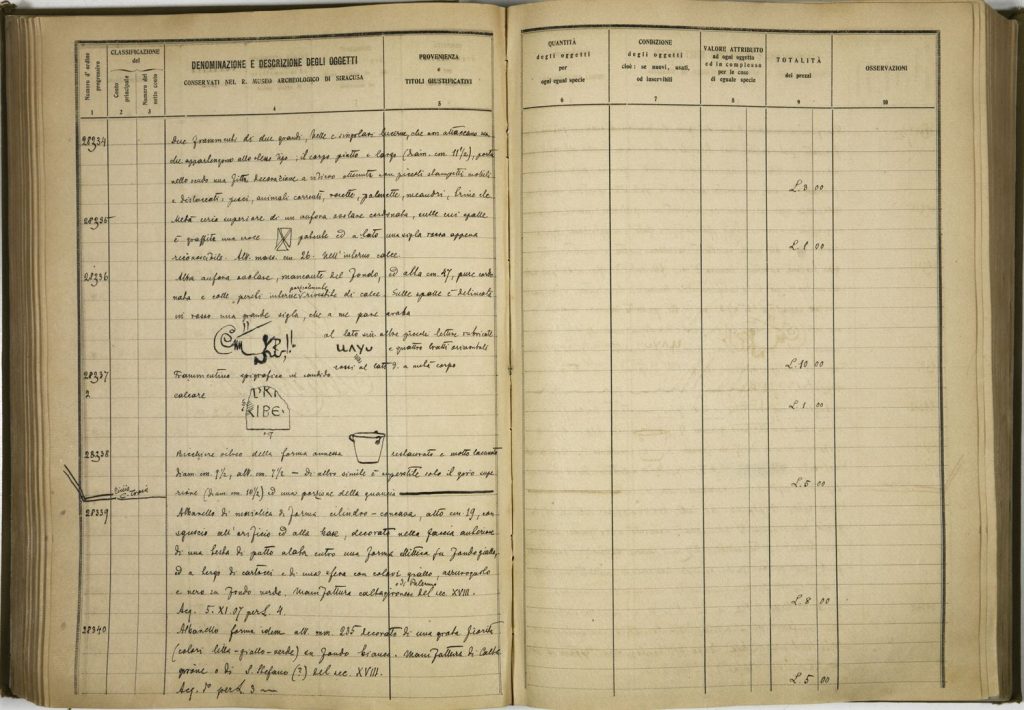 CLASSIFICAZIONE
del
Numero d'ordine progressivo
Conto principale
Numero del sotto conto
DENOMINAZIONE E DESCRIZIONE DEGLI OGGETTI
CONSERVATI NEL R. MUSEO ARCHEOLOGICO DI SIRACUSA
PROVENIENZA
e
TITOLI GIUSTIFICATIVI
1 2 3 4 5
28234 Due frammenti di due grandi, belle e singolari lucerne, che non attaccano ma
due appartengono allo stesso tipo; il corpo piatto e largo (diam. cm. 11 1/2), porta
nello scudo una fitta decorazione a rilievo ottenuta con piccoli stampetti mobili
e distaccati: pesci, animali correnti, rosette, palmette, meandri,
28235 Metà circa superiore di un anfora ovolare cordonata, sulle cui spalle
è graffita una croce patente ed a lato una sigla rossa appena
riconoscibile. Alt. mass. cm. 26. Nell'interno calce.
28236 Altra anfora ovolare, mancante del fondo, ed alta cm. 47, pure cordo
nata e colle pareti interne parzialmente rivestite di calce. Sulle spalle è delineata
in rosso una grande sigla, che a me pare araba
al lato altre lettere rubricate
e quattro tratti orizzontali
rossi al lato d. a metà corpo
28237 Frammentino epigrafico in candido
2 calcare
PRI
RIBE
28238 Bicchiere vitreo della forma annessa restaurato e molto lacunoso
diam. cm. 9 1/2, alt. cm. 7 1/2 – di altro simile è superstite solo il giro supe
riore (diam. cm. 10 1/2) ed una porzione della guancia
28339 Albarello di maiolica di forma cilindro-concava, alto cm 19, con
sguscio all'orificio ed alla base, decorato nella faccia anteriore
di una testa di putto alato entro una forma ellittica su fondo giallo,
ed a tergo di cartocci e di una sfera con colori giallo, azzurrognolo
e nero su fondo verde. Manifattura caltagironese o di Palermo del sec. XVIII.
Acq. 5. XI. 07 per L. 4.
28340 Albarello forma idem alt. mm. 235 decorato di una grata fiorita
(colori bleu-giallo-verde) su fondo bianco. Manifattura di Calta
girone o di S. Stefano (?) del sec. XVIII.
Acq. per L. 3
QUANTITÀ
degli oggetti
per
ogni egual specie
CONDIZIONE
degli oggetti
cioè: se nuovi, usati,
od inservibili
VALORE ATTRIBUITO
ad ogni oggetto
ed in complesso
per le cose
di eguale specie
TOTALITÀ
dei prezzi
OSSERVAZIONI
6 7 8 9 10
L. 3 00
L. 1 00
L. 10 00
L. 1 00
L. 5 00
L. 8 00
L. 5 00